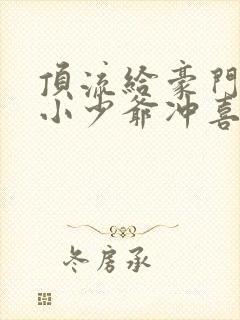 頂流給豪門
小少爺沖喜
冬房承